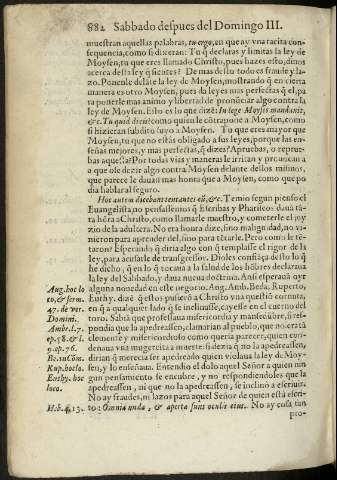 882 Sabbado despues del Domingo III.
muestran aquellas palabras, tu ergo, en que ay vna tacita con-
sequencia, como si dixeran: Tu q̃ declaras y limitas la ley de
Moysen, tu que eres llamado Christo, pues hazes esto, dinos
acerca desta ley q̃ sientes? De mas desto todo es fraude y la-
zo. Ponenle delãte la ley de Moysen, mostrando q̃ en cierta
manera es otro Moysen, pues da leyes mas perfectas q̃ el, pa
ra ponerle mas animo y libertad de pronũciar algo contra la
ley de Moysen. Esto es lo que dizẽ: In lege Moyses mandauit,
&c. Tu quid dicis? como quien le cõtrapone a Moysen, como
si hizieran subdito suyo a Moysen. Tu que eres mayor que
Moysen, tu que no estás obligado a sus leyes, porque las en-
señas mejores, y mas perfectas, q̃ dizes? Aprueuas, o reprue-
bas aquesta? Por todas vias y maneras le irritan y prouocan a
a que ole dezir algo contra Moysen delante dellos mismos,
que parece le dauan mas honra que a Moysen, como que po
dia hablar al seguro.
Hoc autem dicebant tentantes eũ, &c. Temio segun pienso el
Euangelista, no pensassemos q̃ Escribas y Phariseos dauã tã-
ta hõra a Christo, como llamarle maestro, y cometerle el juy
zio de la adultera. No era honra dize, sino malignidad, no vi-
nieron para aprender del, sino para tẽtarle. Pero como le tẽ-
taron? Esperando q̃ diria algo con q̃ templasse el rigor de la
ley, para acusarle de transgressor. Dioles confiãça desto lo q̃
he dicho, q̃ en lo q̃ tocaua a la salud de los hõbres declaraua
la ley del Sabbado, y daua nueua doctrina. Assi esperauã oyr
Aug. hoc lo alguna nouedad en este negocio. Ang. Amb. Beda, Ruperto,
to, & serm. Euthy. dizẽ q̃ estos pusierõ a Christo vna questiõ cornuta,
47. de ver. en q̃ a qualquier lado q̃ se inclinasse, cayesse en el cuerno del
Domini. toro. Sabiã que professaua misericordia y mansedũbre, si res-
Ambr. l. 7. pondia que la apedreassen, clamarian al pueblo, que no era tã
ep. 58. & l. clemente y misericordioso como queria parecer, quien con-
9. ep. 76. denaua vna mugercita a muerte: si dezia q̃ no la apedreassen,
Be. in Cõm. dirian q̃ merecia ser apedreado quien violaua la ley de Moy-
Rup. hoc lo. sen, y lo enseñaua. Entendio el dolo aquel Señor a quien nin
Euthy. hoc gun pensamiento se encubre, y no respondiendoles que la
loco. apedreassen, ni que no la apedreassen, se inclinò a escriuir.
No ay fraudes, ni lazos para aquel Señor de quien está escri-
Heb. 4, 13. to: Omnia nuda, & aperta sunt oculis eius. No ay cosa tan
pro-